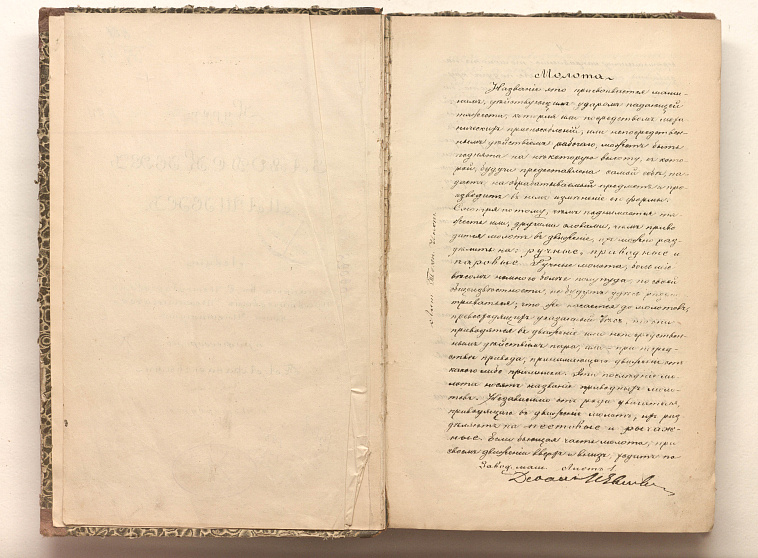 Молота.
Названіе это присвоивается маши-
намъ, дѣйствующимъ ударомъ падающей
тяжести, которая или посредствомъ меха-
ническихъ приспособленій, или непосредствен-
нымъ дѣйствіемъ рабочаго, можетъ быть
поднята на нѣкоторую высоту, съ кото-
рой, будучи предоставлена самой себѣ, па-
даетъ на обрабатываемый предметъ и про-
изводитъ въ немъ измѣненіе его формы.
Смотря потому, чѣмъ поднимается тя-
жесть или, другими словами, чѣмъ приво-
дится молотъ въ движеніе, ихъ можно раз-
дѣлить на: ручные, приводные и
паровые. Ручные молота, большіе
вѣсомъ немного больше полупуда, по своей
общеизвѣстности, не будутъ здѣсь разсма-
триваться; что же касается до молотовъ,
превосходящихъ указанный вѣсъ, то они
приводятся въ движеніе или непосредствен-
нымъ дѣйствіемъ пара, или при посред-
ствѣ привода, принимающаго движеніе отъ
какого либо пріемника. Эти послѣдніе мо-
лота носятъ названіе приводныхъ моло-
товъ. Независимо отъ рода двигателя,
приводящаго въ движеніе молотъ, ихъ раз-
дѣляютъ на пестовые и рычаж-
ные. Если бьющая часть молота, при
своемъ движеніи вверхъ и внизъ, ходитъ по
Завод. маш. Листъ 1